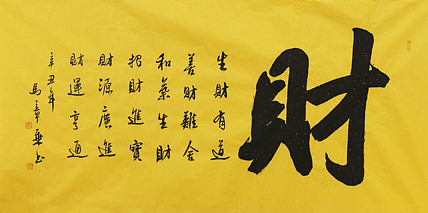 財
生財有道
善財難舍
和氣生財
招財進寶
財源廣進
財運亨通
辛丑年
馬章乘书